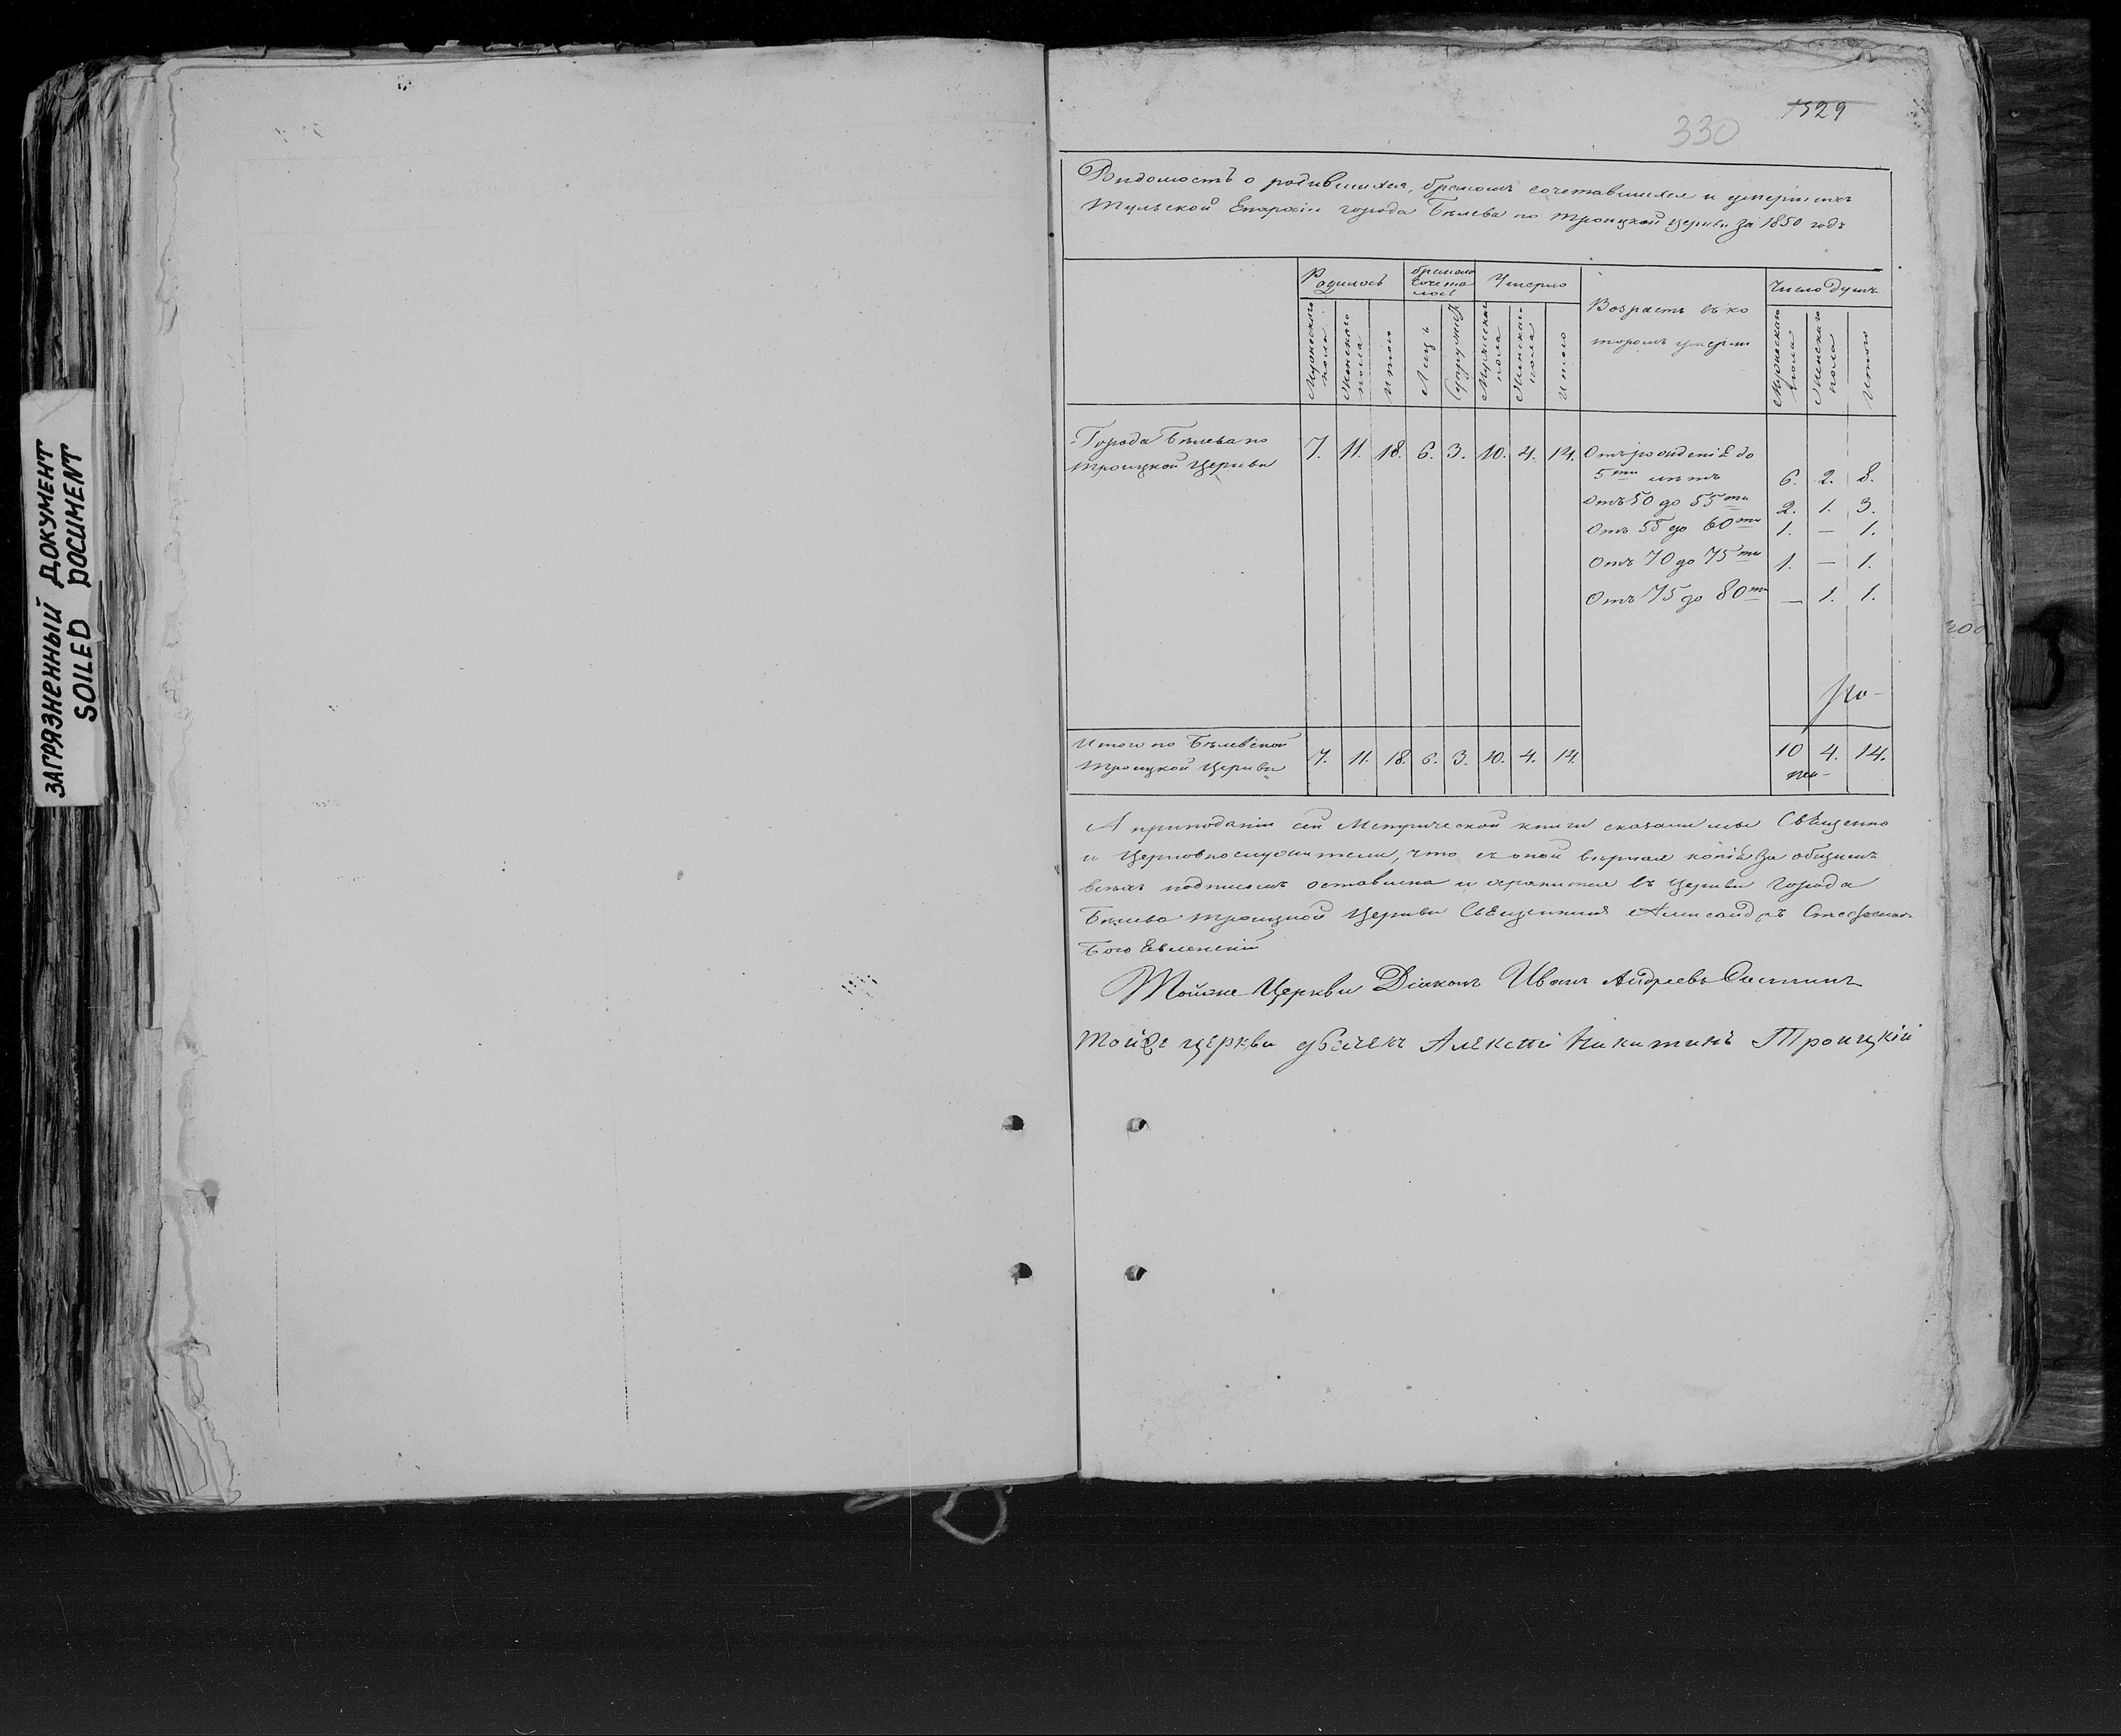 ЗАГРЯЗНЕННЫЙ ДОКУМЕНТ
SOILED DOCUMENT
1529
330
Вѣдомость о родившихся, бракомъ сочетавшихся и умершихъ
Тульской Епархіи города Бѣлева по Троицкой Церкви за 1850 годъ
Родилось
бракомъ сочеталось
Умерло
Возрастъ въ ко
торомъ умерли
Число душъ
Мужескаго пола
Женскаго пола
Итого
Лицъ
Супружествъ
Мужескаго пола
Женскаго пола
Итого
Мужескаго пола
Женскаго пола
Итого
Города Бѣлева по
Троицкой Церкви
7. 11. 18. 6. 3. 10. 4. 14.
Отъ рожденія до
5ти лѣтъ 6. 2. 8.
Отъ 50 до 55ти 2. 1. 3.
Отъ 55 до 60ти 1. — 1.
Отъ 70 до 75ти 1. — 1.
Отъ 75 до 80ти — 1. 1.
Итого по Бѣлевской
Троицкой Церкви
7. 11. 18. 6. 3. 10. 4. 14. 10 4. 14.
А при поданіи сей Метрической книги сказали мы Священно
и Церковнослужители, что съ оной вѣрная копія за общимъ
всѣхъ подписомъ оставлена и хранится въ Церкви города
Бѣлева Троицкой Церкви Священникъ Александръ Стефановъ
Богоявленскій
Тойже Церкви Діаконъ Иванъ Андреевъ
Тойже церкви дьячекъ Алексѣй Никитинъ Троицкій
200